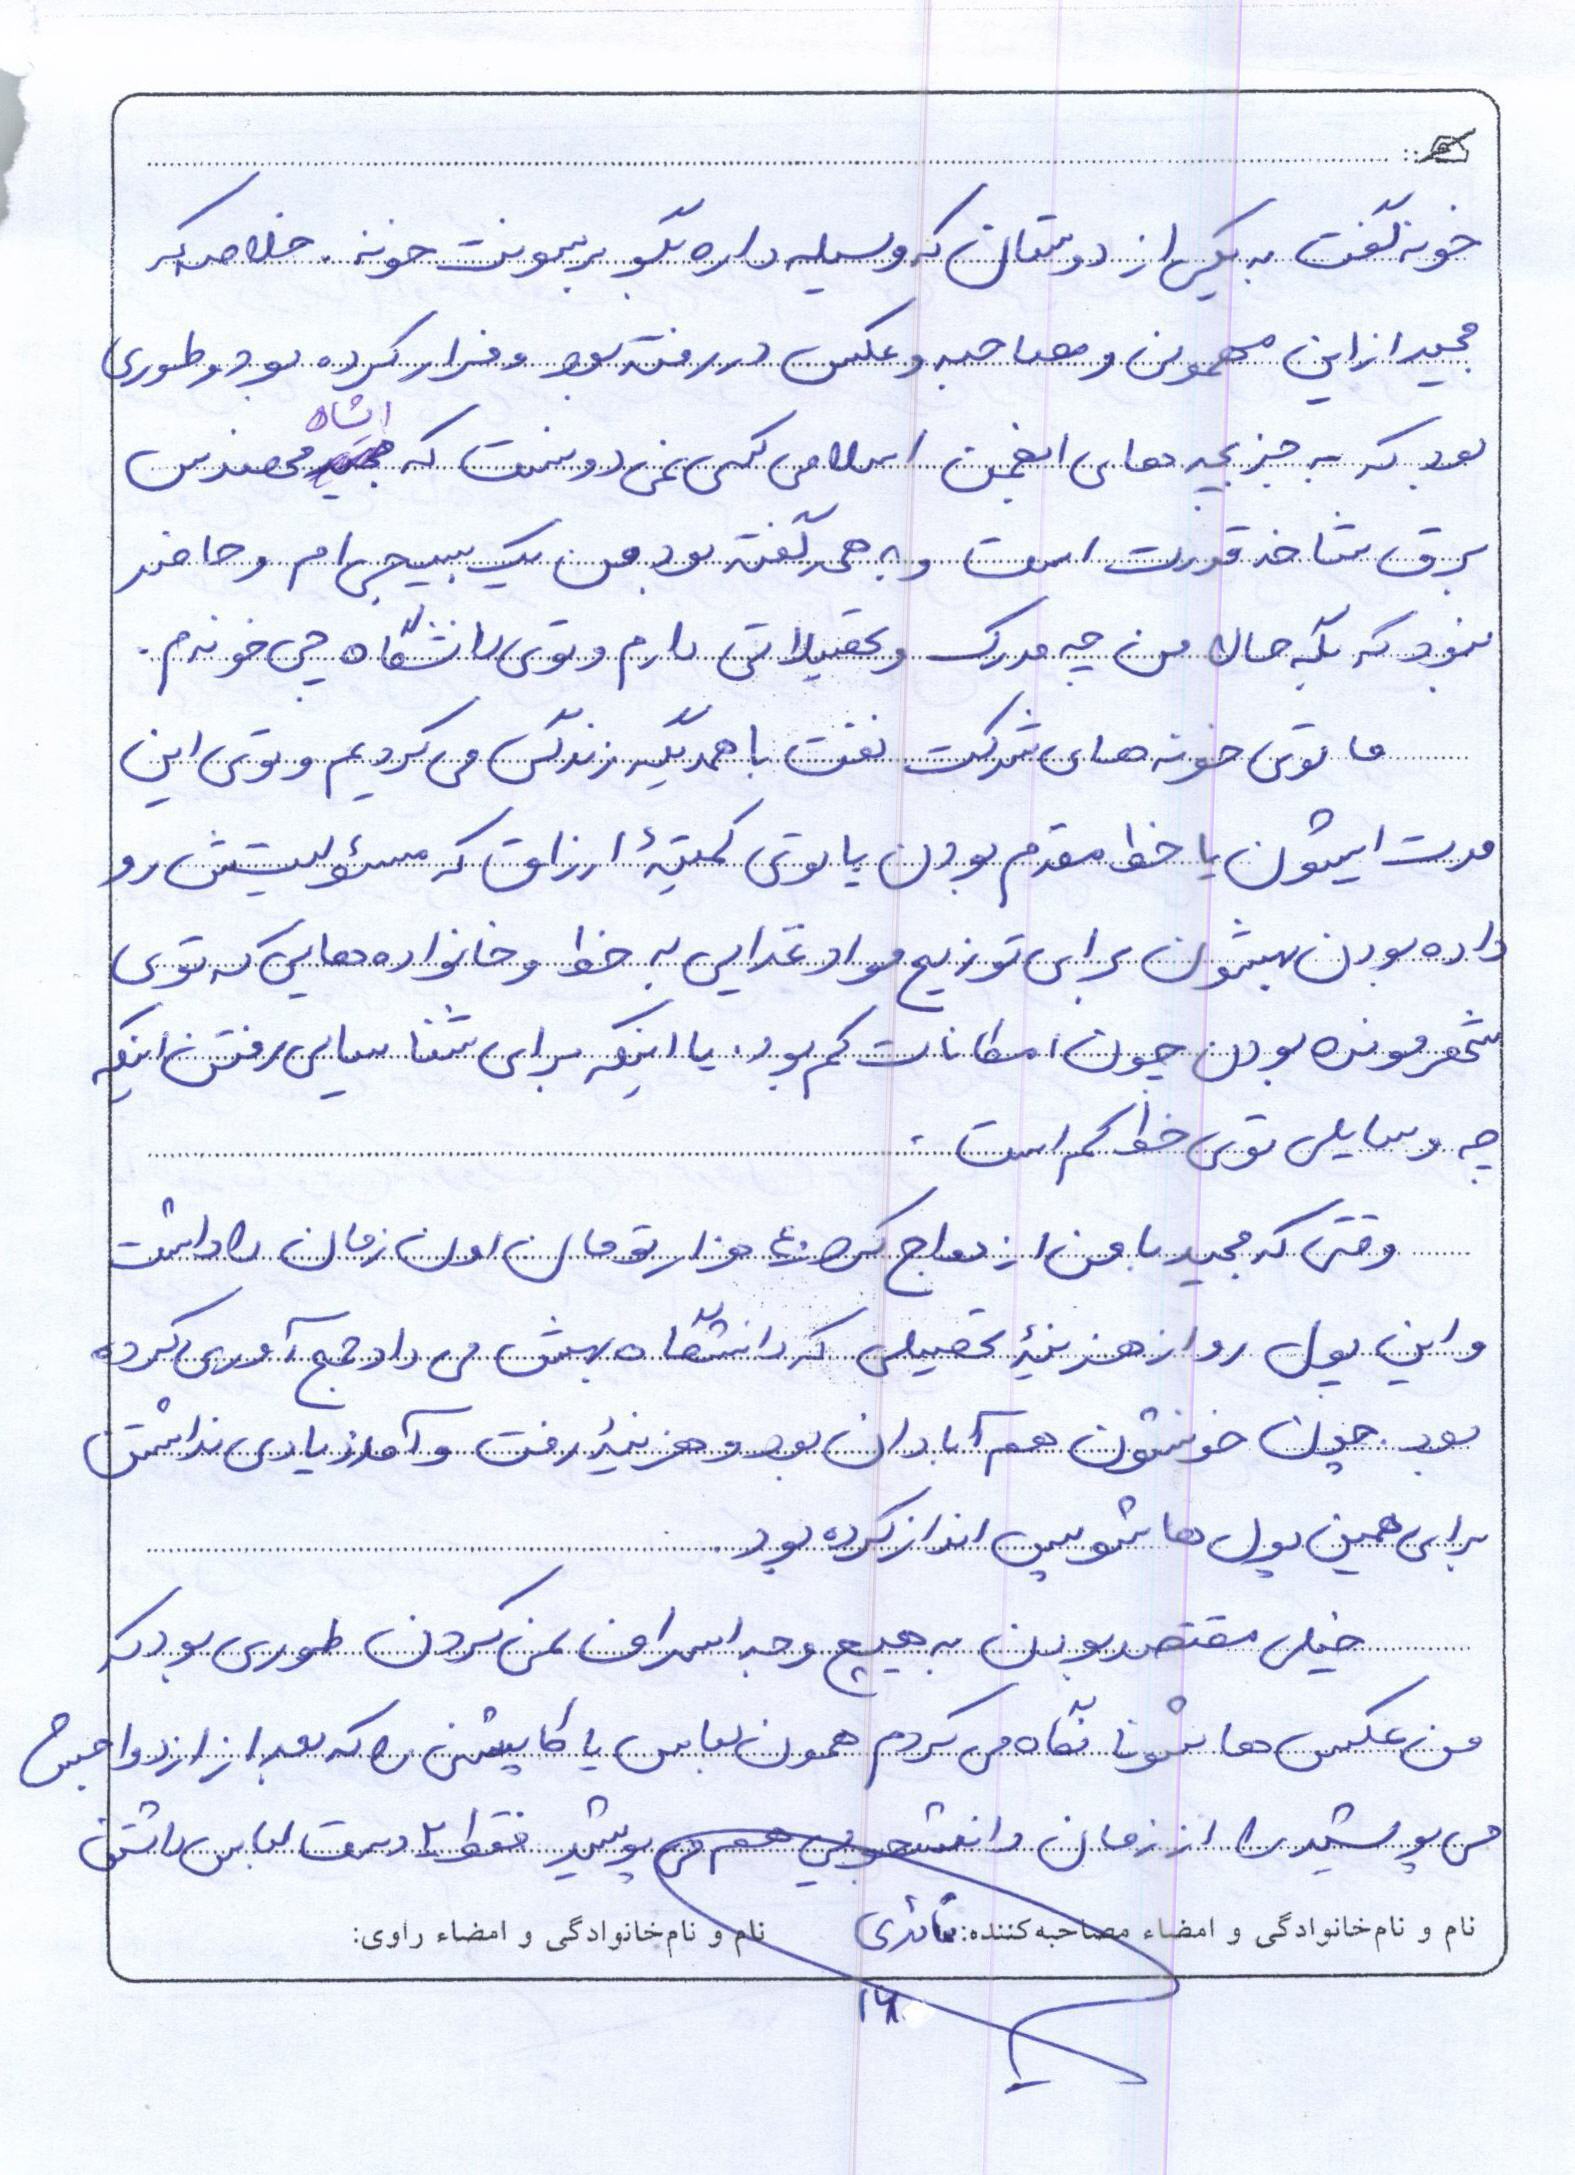 خونه گفت به یکی از دوستان که وسیله داره بگو ببرمونت خونه. خلاصه که
مجید از این مهمون و مصاحبه و عکس در رفته بود و فرار کرده بود و طوری
بود که به جز بچه های انجمن اسلامی کسی نمی دونست که ایشان مهندس
برق شاخه قدرت است و به همه گفته بود من یک بسیجی ام و حاضر
نبود که بگه حالا من چه مدرک و تحصیلاتی دارم و توی دانشگاه چی خوندم.
ما توی خونه های شرکت نفت با همدیگه زندگی می کردیم و توی این
مدت ایشون یا خط مقدم بودن یا توی کمیتهٔ ارزاق که مسئولیتش رو
داده بودن بهشون برای توزیع مواد غذایی به خط و خانواده هایی که توی
شهر مونده بودن چون امکانات کم بود. یا اینکه برای شناسایی رفتن اینکه
چه وسایلی توی خط کم است.
وقتی که مجید با من ازدواج کرد ۴۰ هزار تومان اون زمان را داشت
و این پول رو از هزینهٔ تحصیلی که دانشگاه بهش می داد جمع آوری کرده
بود. چون خونشون هم آبادان بود و هزینهٔ رفت و آمد زیادی نداشتن
برای همین پول هاشو پس انداز کرده بود.
خیلی مقتصد بودن به هیچ وجه اسراف نمی کردن طوری بود که
من عکس هاشونا نگاه می کردم همون لباس یا کاپشنی را که بعد از ازدواجش
می پوشید را از زمان دانشجویی هم می پوشید فقط ۲ دست لباس داشتن
نام و نام‌خانوادگی و امضاء مصاحبه‌کننده:
نام و نام‌خانوادگی و امضاء راوی: